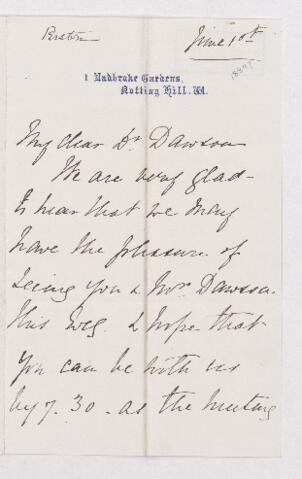 June 10th
1 Ladbroke Gardens,
Notting Hill. W.
My dear Dr Dawson
We are very glad
to hear that we may
have the pleasure of
seeing you & Mrs Dawson
this & hope that
you can be with us
by 7.30 - as the meeting